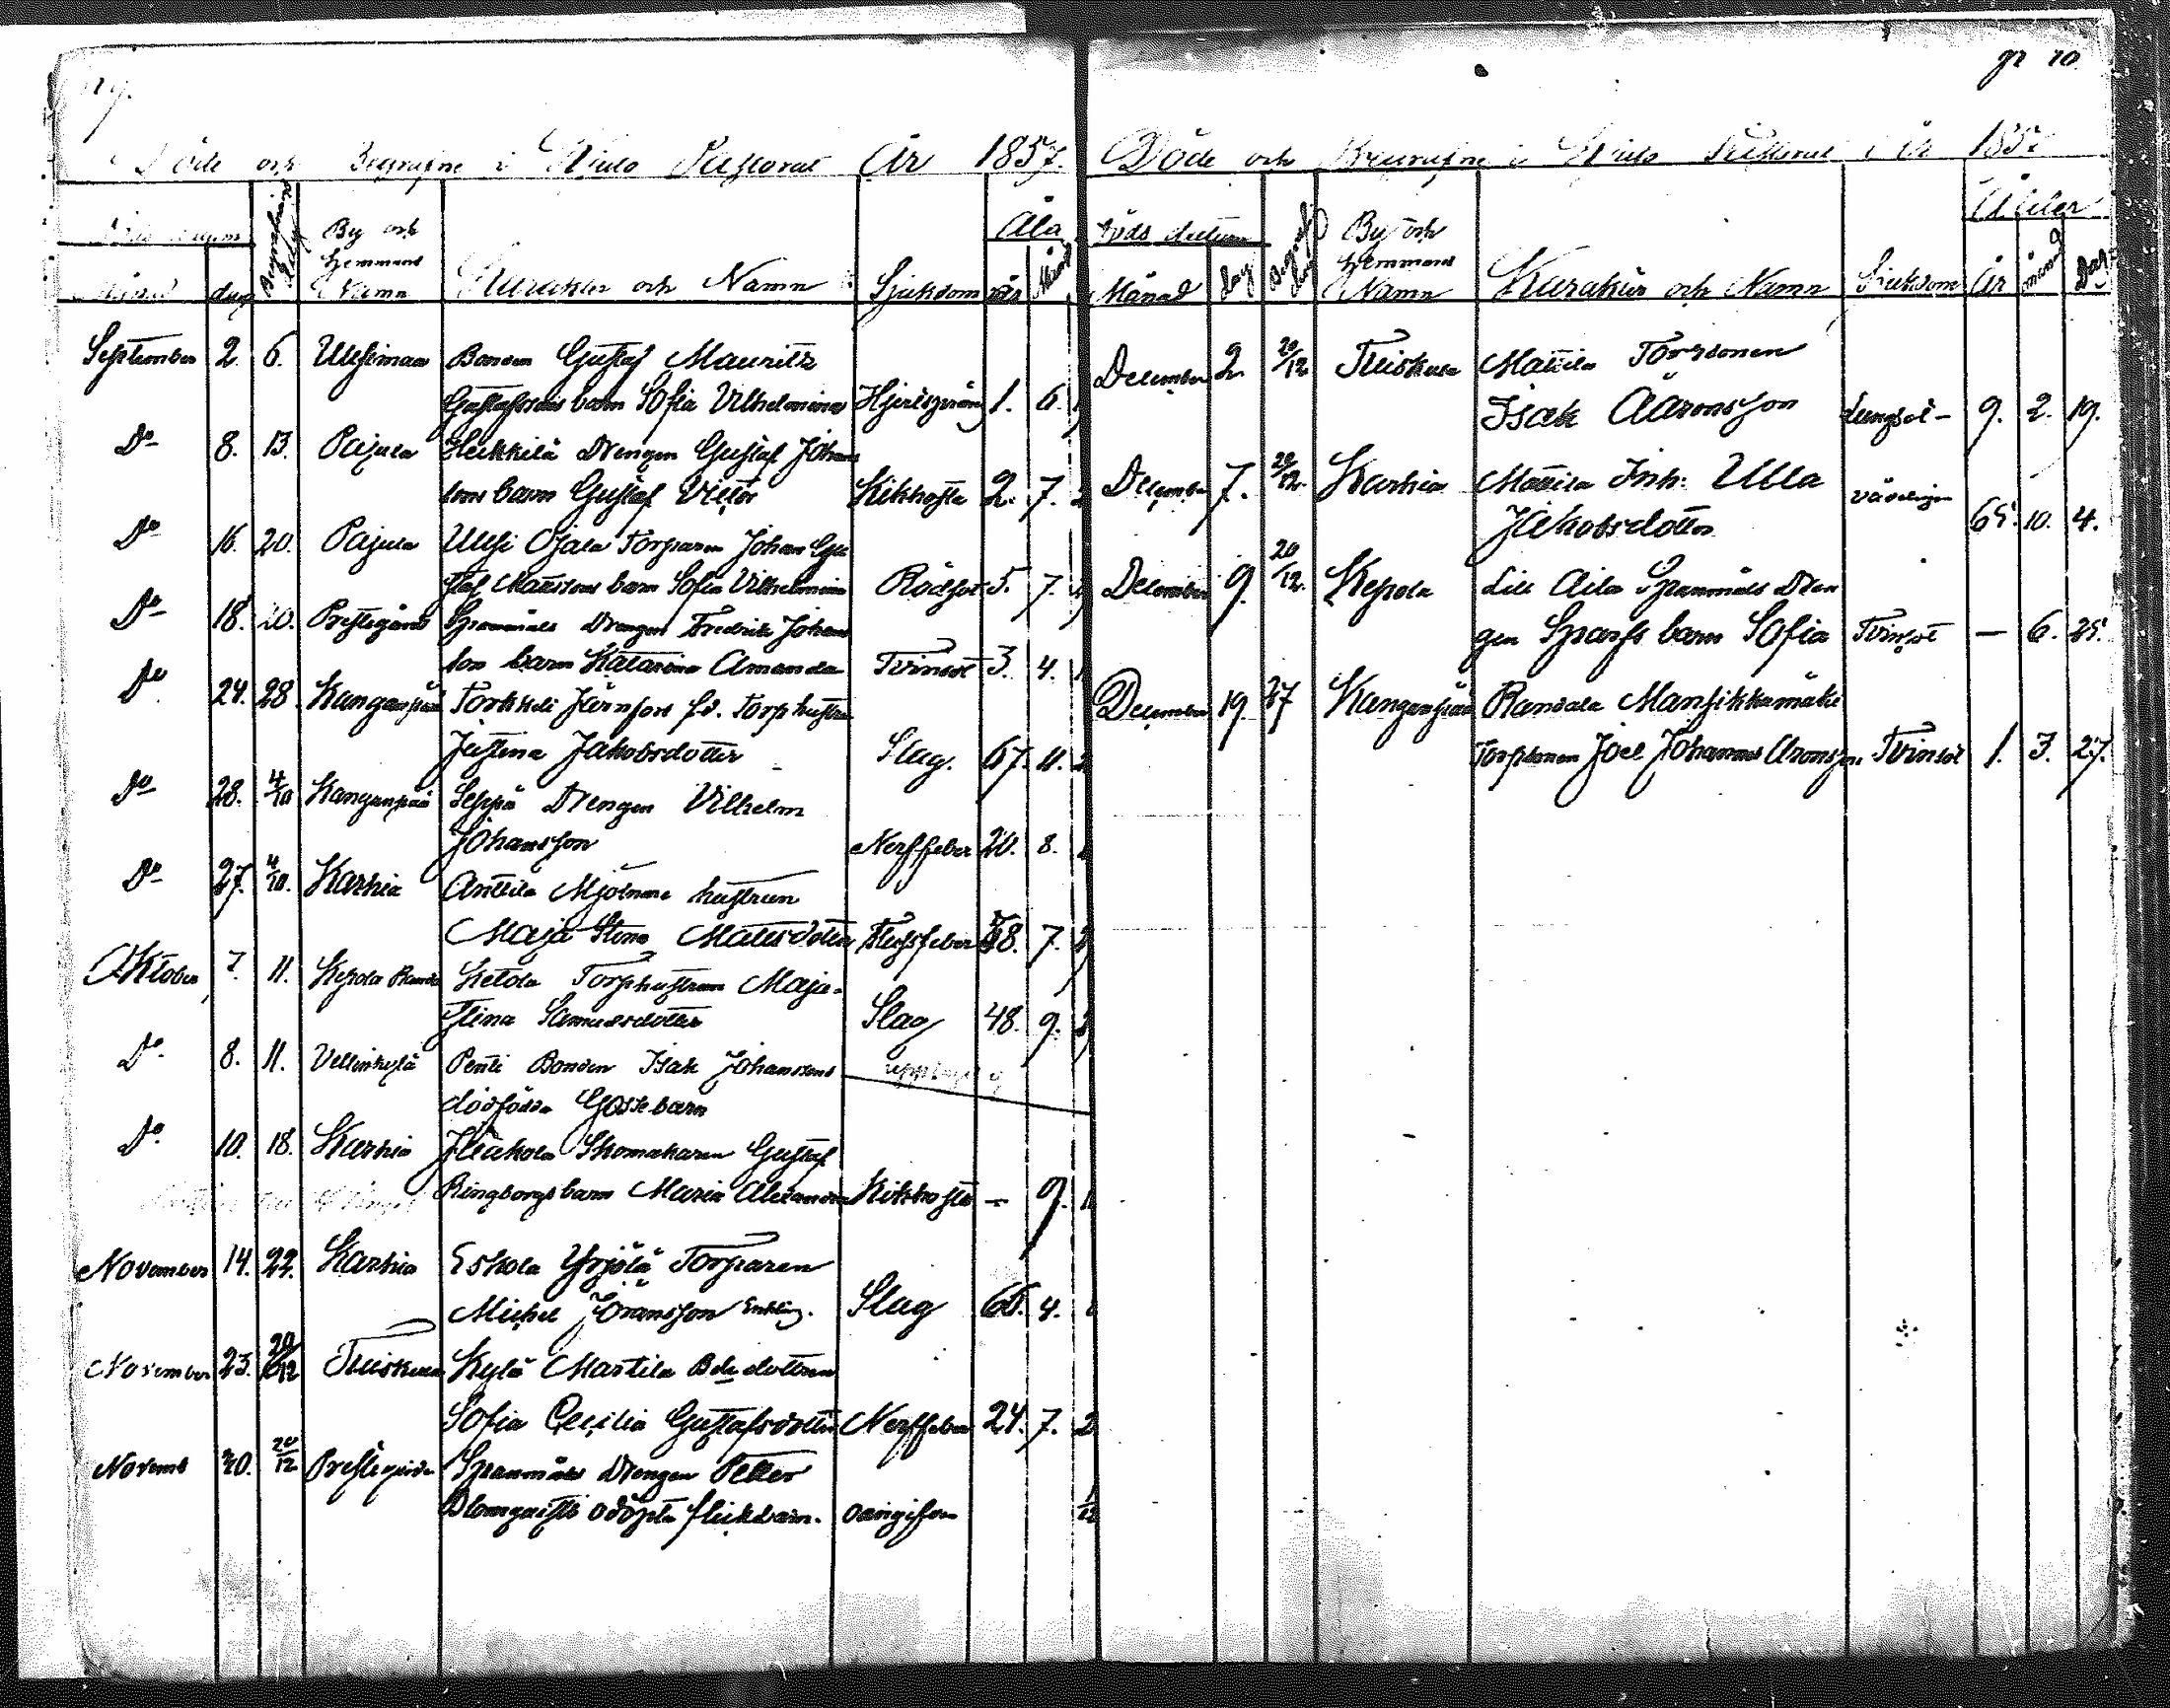 Döde och Begrafne i Kiulo Pastorat År 1857.
Döds datum
Begrafnings dag
By och Hemmans Namn
Karakter och Namn
Sjukdom
Ålder
Månad dag
år Månad
September 2. 6. Uusimaa Bonden Gustaf Mauritz
Gustafssons barn Sofia Vilhelmina Hjertsprång 1. 6.
Do 8. 13. Pajula Heikkilä Drengen Gustaf Johans
sons barn Gustaf Victor Kikhosta 2. 7.
Do 16. 20. Pajula Uusi Ojala Torparen Johan Gu
staf Mattssons barn Sofia Vilhelmina Rödsot 5. 7.
Do 18. 20. Prestegård Spannmåls Drengen Fredrik Johans
son barn Katarina Amanda Tvinsot 3. 4.
Do 24. 28. Kanganpää Torkkeli Järnfors f.d. Torp hustru
Justina Jakobsdotter Slag. 67. 11.
Do 28. 4/10 Kanganpää Seppä Drengen Vilhelm
Johansson Nerffeber 20. 8.
Do 27. 4/10. Karhia Anttila Mjölnare hustrun
Maja Stina Mattsdotter Flussfeber 58. 7.
Oktober 7. 11. Kepola Ketola Torphustrun Maja
Stina Samuelsdotter Slag 48. 9.
Do 8. 11. Vellinkylä Pentti Bonden Isak Johanssons
dödfödda Gossebarn
Do 10. 18. Karhia Skomakaren Gustaf
Ringborgs barn Maria Alexandra Kikhosta — 9.
November 14. 22. Karhia Eskola Yrjölä Torparen
Michel Göransson Enkling. Slag 66. 4.
November 23. 20/12 Tuiskula Kylä Marttila Bde dottren
Sofia Cecilia Gustafsdotter Nerffeber 24. 7.
Novemb 30. 20/12 Prestegård Spannmåls Drengen Petter
Blomqvists odöpta flickbarn. oangifven
Döde och Begrafne i Kiulo Pastorat År 185
Döds datum
By och Hemmans Namn
Karakter och Namn
Sjukdom
Ålder
Månad dag
År månad Dag
December 2. 20/12 Tuiskula Mattila Torpsonen
Isak Aaronsson Lungsot 9. 2. 19.
December 7. 20/12. Karhia Mattila Inh: Ulla
Jakobsdotter 65. 10. 4.
December 9. 20/12. Kepola Lill Aila Spannmåls Dren
gen Sparfs barn Sofia Tvinsot — 6. 25.
December 19. 27 Kanganpää Randala Mansikkamäki
Torpsonen Joel Johannes Aronsson. Tvinsot 1. 3. 27.